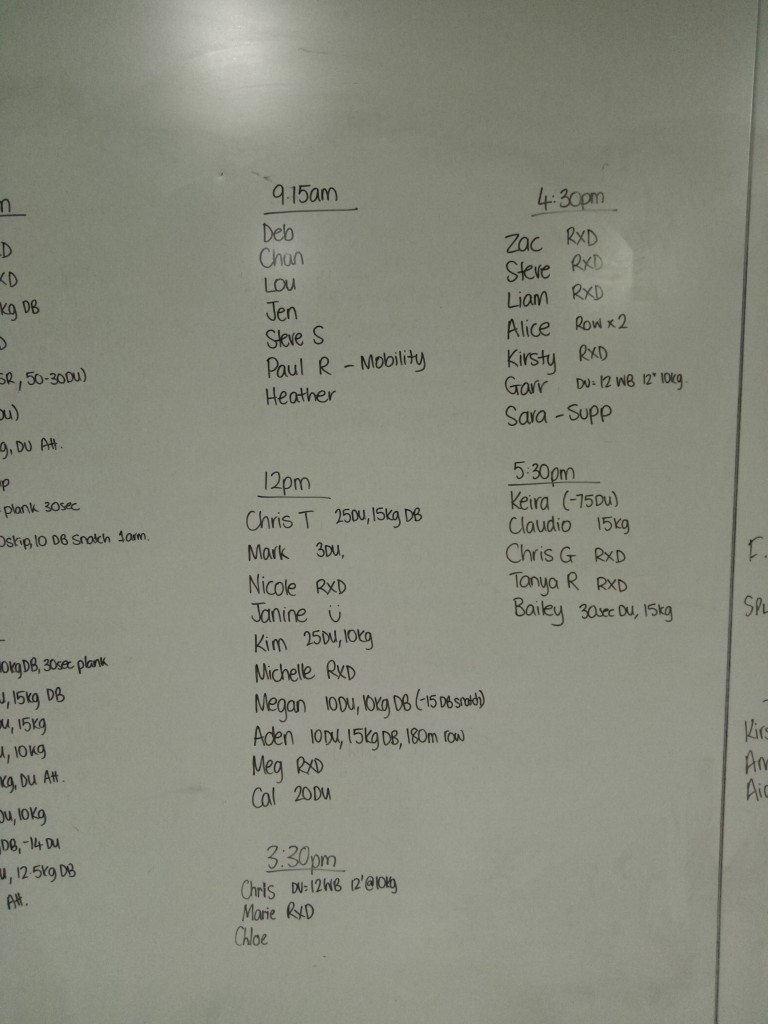 D
XD
kg DB
D
SR, 50-30DU)
DU)
g, DU Att.
plank 30sec
skip, 10 DB Snatch 1arm.
10kgDB, 30sec plank
U, 15kg DB
U, 15kg
U, 10kg
kg, DU Att.
DU, 10kg
DB, -14 DU
U, 12.5kg DB
Att.
9.15am
Deb
Chan
Lou
Jen
Steve S
Paul R - Mobility
Heather
12pm
Chris T 25DU, 15kg DB
Mark 3DU,
Nicole RXD
Janine Ü
Kim 25DU, 10kg
Michelle RXD
Megan 10DU, 10kg DB (-15 DB snatch)
Aden 10DU, 15kg DB, 180m row
Meg RXD
Cal 20DU
3:30pm
Chris DU=12WB 12'@10kg
Marie RXD
Chloe
4:30pm
Zac RXD
Steve RXD
Liam RXD
Alice Row x 2
Kirsty RXD
Garr DU=12 WB 12" 10kg.
Sara - Supp
5:30pm
Keira (-75DU)
Claudio 15kg
Chris G RXD
Tanya R RXD
Bailey 30sec DU, 15kg
SPL
Kirs
Am
Aid